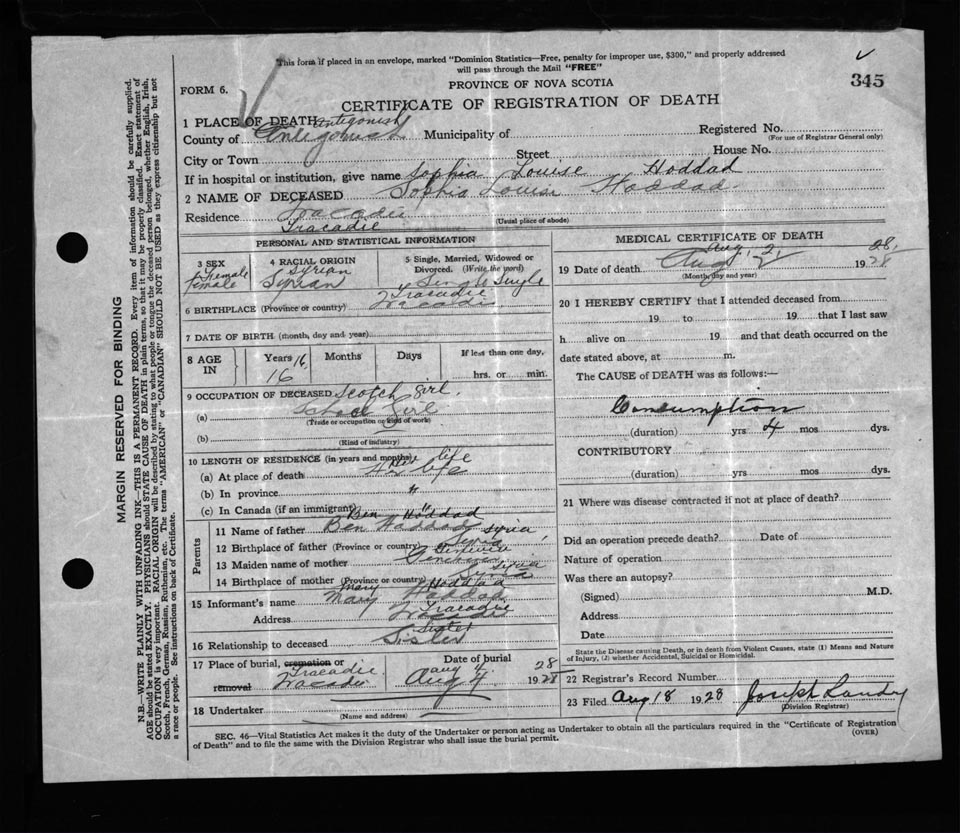 This form if placed in an envelope, marked "Dominion Statistics—Free, penalty for improper use, $300," and properly addressed
will pass through the Mail "FREE"
345
PROVINCE OF NOVA SCOTIA
FORM 6.
CERTIFICATE OF REGISTRATION OF DEATH
1 PLACE OF DEATH Antigonish
County of Antigonish Municipality of
Registered No.
(For use of Registrar General only)
City or Town Street House No.
If in hospital or institution, give name Sophia Louise Hoddad
2 NAME OF DECEASED Sophia Louise Hoddad
Residence Tracadie
Tracadie
(Usual place of abode)
PERSONAL AND STATISTICAL INFORMATION
3 SEX
Female
female
4 RACIAL ORIGIN
Syrian
Syrian
5 Single, Married, Widowed or
Divorced. (Write the word)
Single Single
6 BIRTHPLACE (Province or country) Tracadie
Tracadie
7 DATE OF BIRTH (month, day and year)
8 AGE IN
Years 16
16
Months
Days
If less than one day,
hrs. or min.
9 OCCUPATION OF DECEASED Scotch Girl.
(a) School Girl
(Trade or occupation or kind of work)
(b)
(Kind of industry)
10 LENGTH OF RESIDENCE (in years and months)
(a) At place of death life
life
(b) In province "
(c) In Canada (if an immigrant) "
Parents
11 Name of father Ben Hoddad
Ben Haddad
12 Birthplace of father (Province or country) Syria
Syria
13 Maiden name of mother
14 Birthplace of mother (Province or country) Syria
Syria
15 Informant's name Mary Hoddad
Mary Haddad
Address Tracadie
Tracadie
16 Relationship to deceased Sister
Sister
17 Place of burial, cremation or
removal Tracadie
Tracadie
Date of burial
Aug 4 28
Aug 4 1928
18 Undertaker
(Name and address)
MEDICAL CERTIFICATE OF DEATH
19 Date of death Aug. 2, 28,
Aug 2 1928
(Month, day and year)
20 I HEREBY CERTIFY that I attended deceased from
19 to 19 that I last saw
h alive on 19 and that death occurred on the
date stated above, at m.
The CAUSE of DEATH was as follows:—
Consumption
(duration) yrs 4 mos dys.
CONTRIBUTORY
(duration) yrs mos dys.
21 Where was disease contracted if not at place of death?
Did an operation precede death? Date of
Nature of operation
Was there an autopsy?
(Signed) M.D.
Address
Date
State the Disease causing Death, or in death from Violent Causes, state (1) Means and Nature
of Injury, (2) whether Accidental, Suicidal or Homicidal.
22 Registrar's Record Number
23 Filed Aug 18 1928 Joseph Landry
(Division Registrar)
SEC. 46—Vital Statistics Act makes it the duty of the Undertaker or person acting as Undertaker to obtain all the particulars required in the "Certificate of Registration
of Death" and to file the same with the Division Registrar who shall issue the burial permit.
(OVER)
MARGIN RESERVED FOR BINDING
N.B.—WRITE PLAINLY WITH UNFADING INK—THIS IS A PERMANENT RECORD. Every item of information should be carefully supplied.
AGE should be stated EXACTLY. PHYSICIANS should STATE CAUSE OF DEATH in plain terms, so that it may be properly classified. Exact statement of
OCCUPATION is very important. RACIAL ORIGIN will be described by stating to what people or tongue the deceased person belonged, whether English, Irish,
Scotch, French, German, Russian, Ruthenian, etc. The terms "AMERICAN" or "CANADIAN" SHOULD NOT BE USED as they express citizenship but not
a race or people. See instructions on back of Certificate.